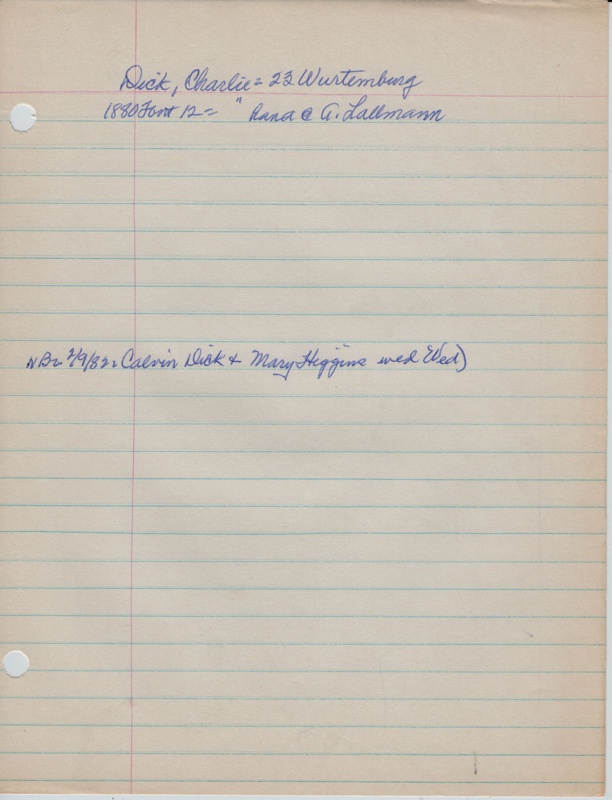 Dick, Charlie = 23 Wurtemburg
1880 12 = " hand @ A. Lallmann
NB 2/9/82 Calvin Dick & Mary Higgins wed Wed)